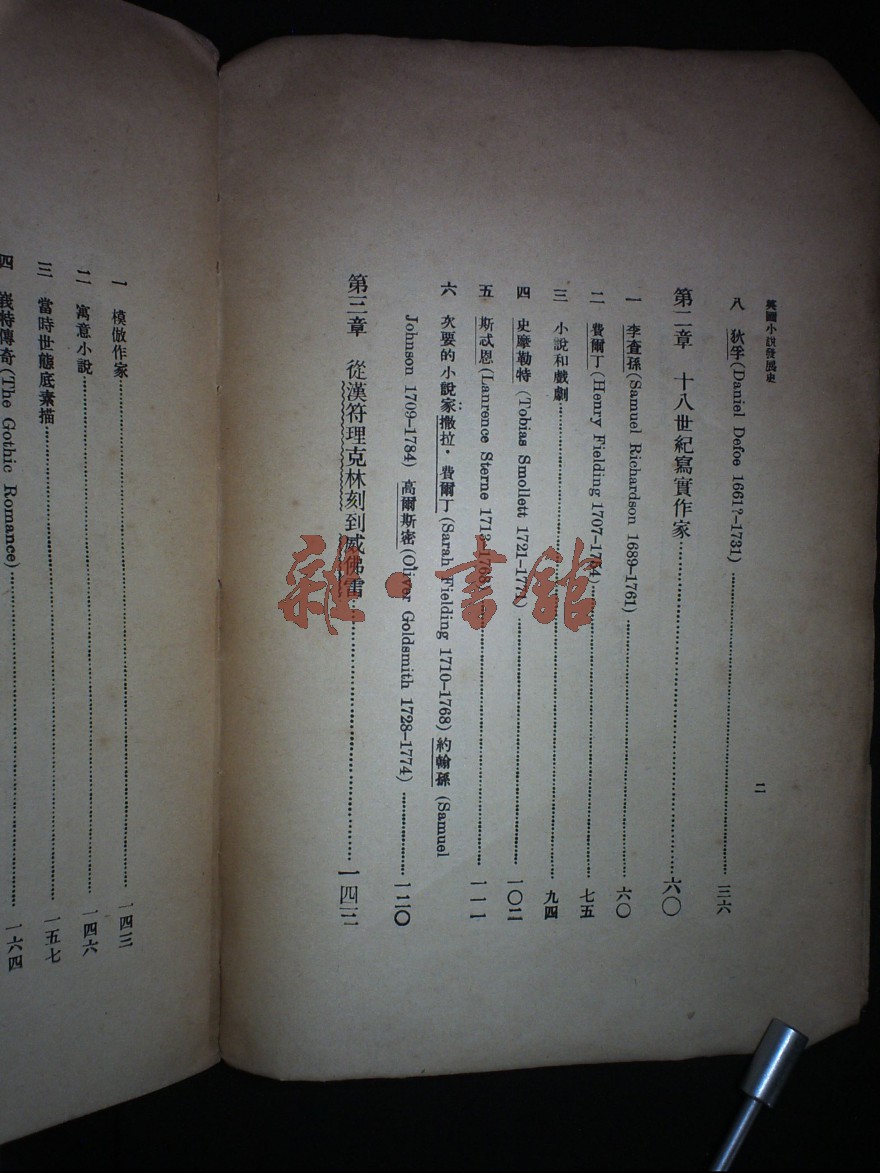 英國小說發展史
二
八 狄孚(Daniel Defoe 1661?-1731)………三六
第二章 十八世紀寫實作家………六〇
一 李査孫(Samuel Richardson 1689-1761)………六〇
二 費爾丁(Henry Fielding 1707-1754)………七五
三 小說和戲劇………九四
四 史摩勒特(Tobias Smollett 1721-1771)………一〇二
五 斯忒恩(Laurence Sterne 1713-1768)………一一一
六 次要的小說家:撒拉·費爾丁(Sarah Fielding 1710-1768)約翰孫(Samuel
Johnson 1709-1784)高爾斯密(Oliver Goldsmith 1728-1774)………一二〇
第三章 從漢符理克林刻到威佛雷………一四三
一 模倣作家………一四三
二 寓意小說………一四六
三 當時世態底素描………一五七
四 義特傳奇(The Gothic Romance)………一六四
雜·書館